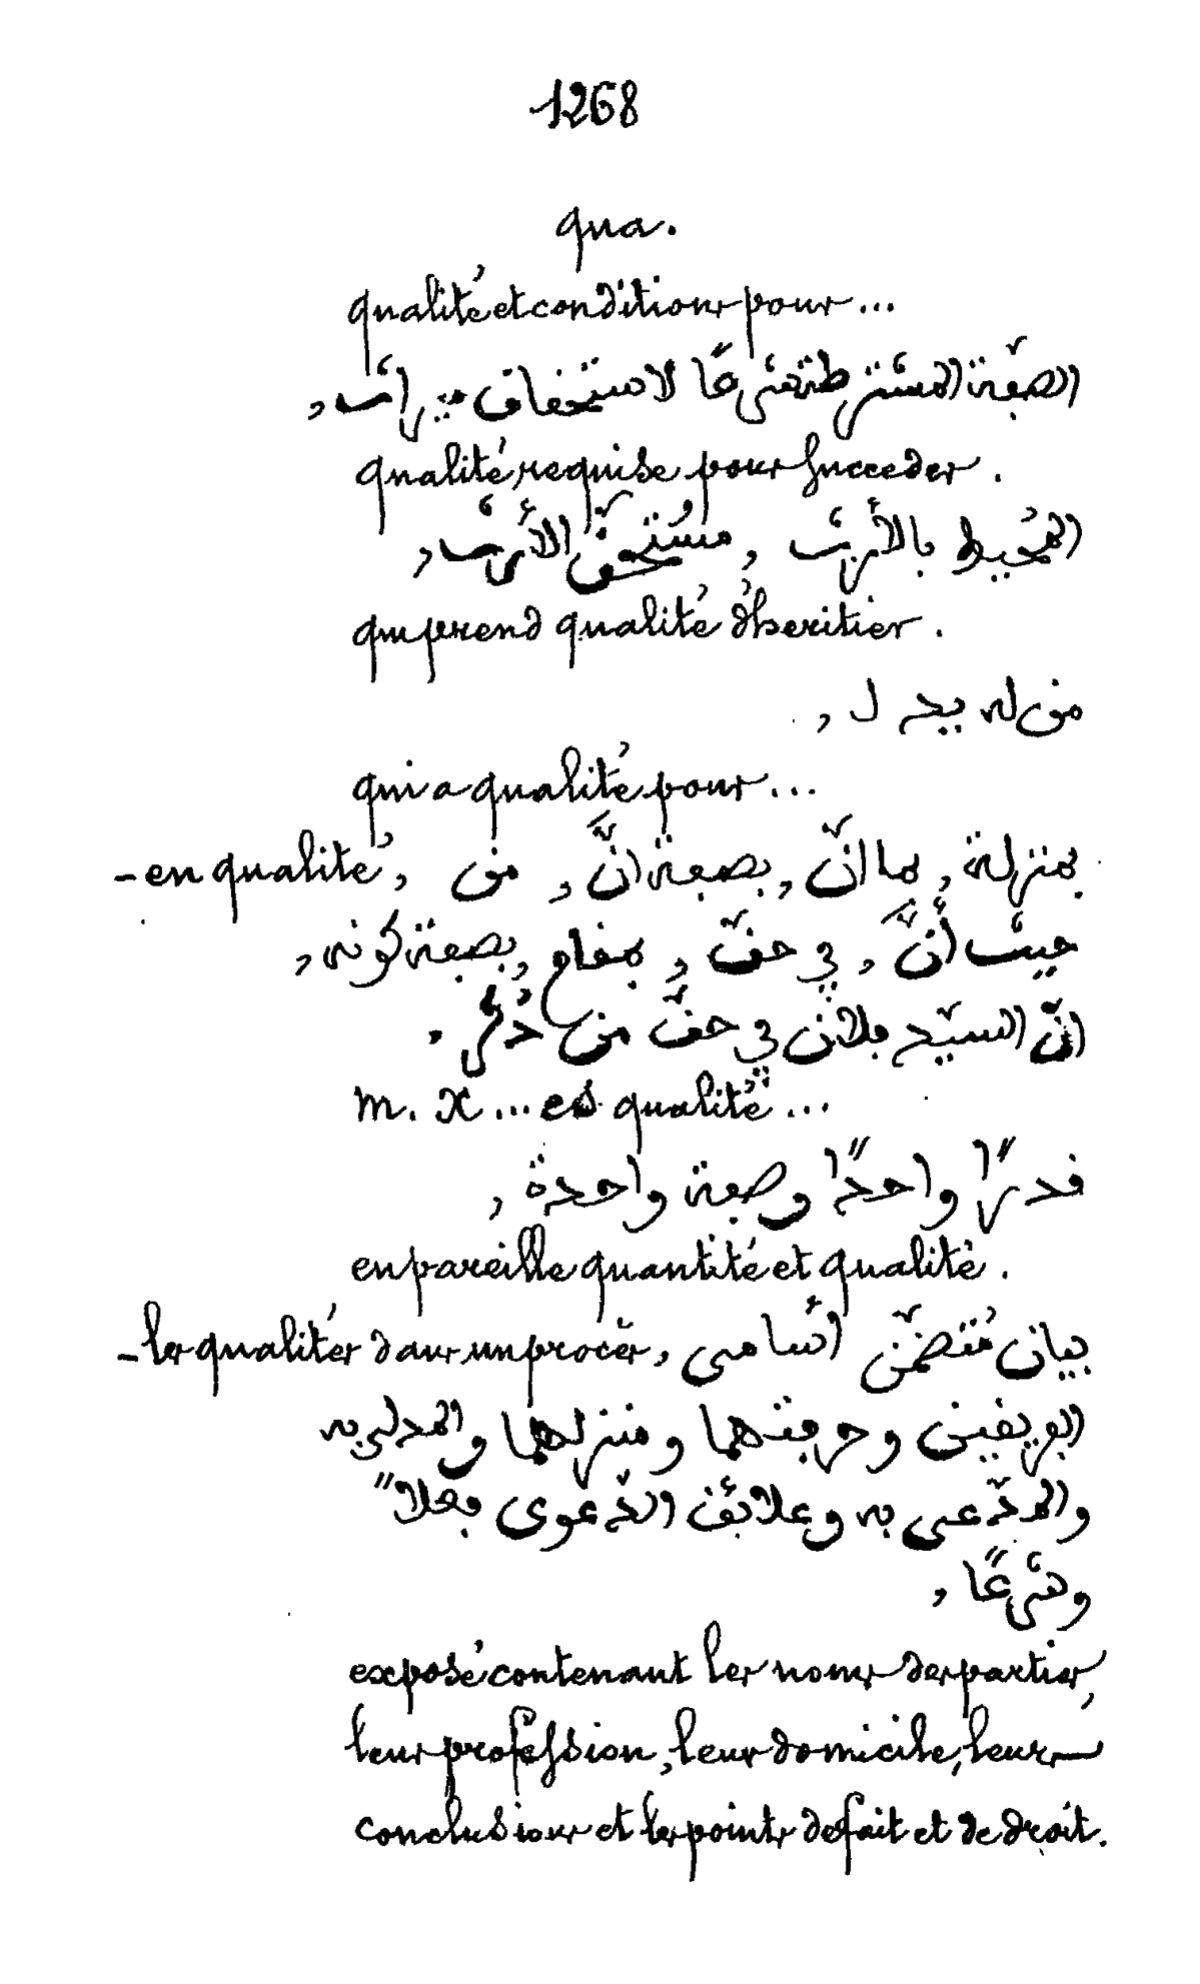 1268
qua.
qualité et conditions pour...
الصّفة المشترطة شرعًا لاستحقاق ميراث,
qualité requise pour succeder.
المُحيط بالأرث, مسُتحقّ الأرث,
qui prend qualité d'heritier.
من له يد ل,
qui a qualité pour...
- en qualité, بمنزلة, بما انّ, بصفة انَّ, من
حيث أنَّ, في حقّ, بمقام, بصفة كونه,
انّ السيّد فلان في حقّ من ذُكر.
m. X... es qualité...
قدرًا واحدًا وصفة واحدة,
en pareille quantité et qualité.
- les qualités dans un procès, بيان مُتضمّن أسامى
الفريقين وحرفتهما ومنزلهما والمدلى به
والمدّعى به وعلائق الدّعوى فعلاً
وشرعًا,
exposé contenant les noms des parties,
leur profession, leur domicile, leurs
conclusions et les points de fait et de droit.